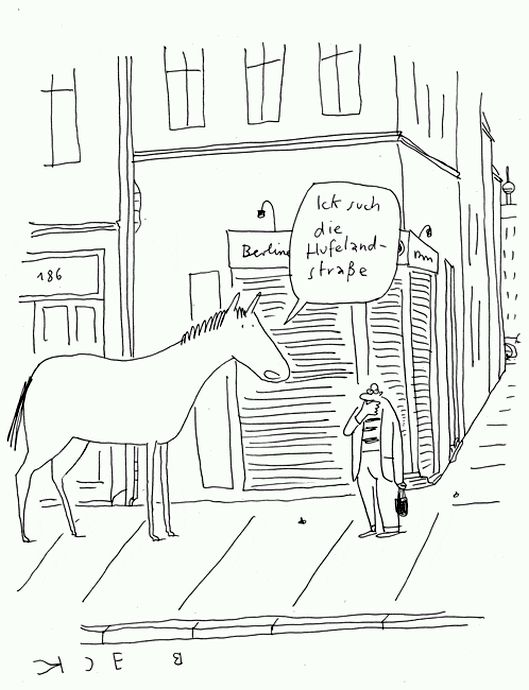 186
Ick such
die
Hufeland-
straße
Berline
BECK